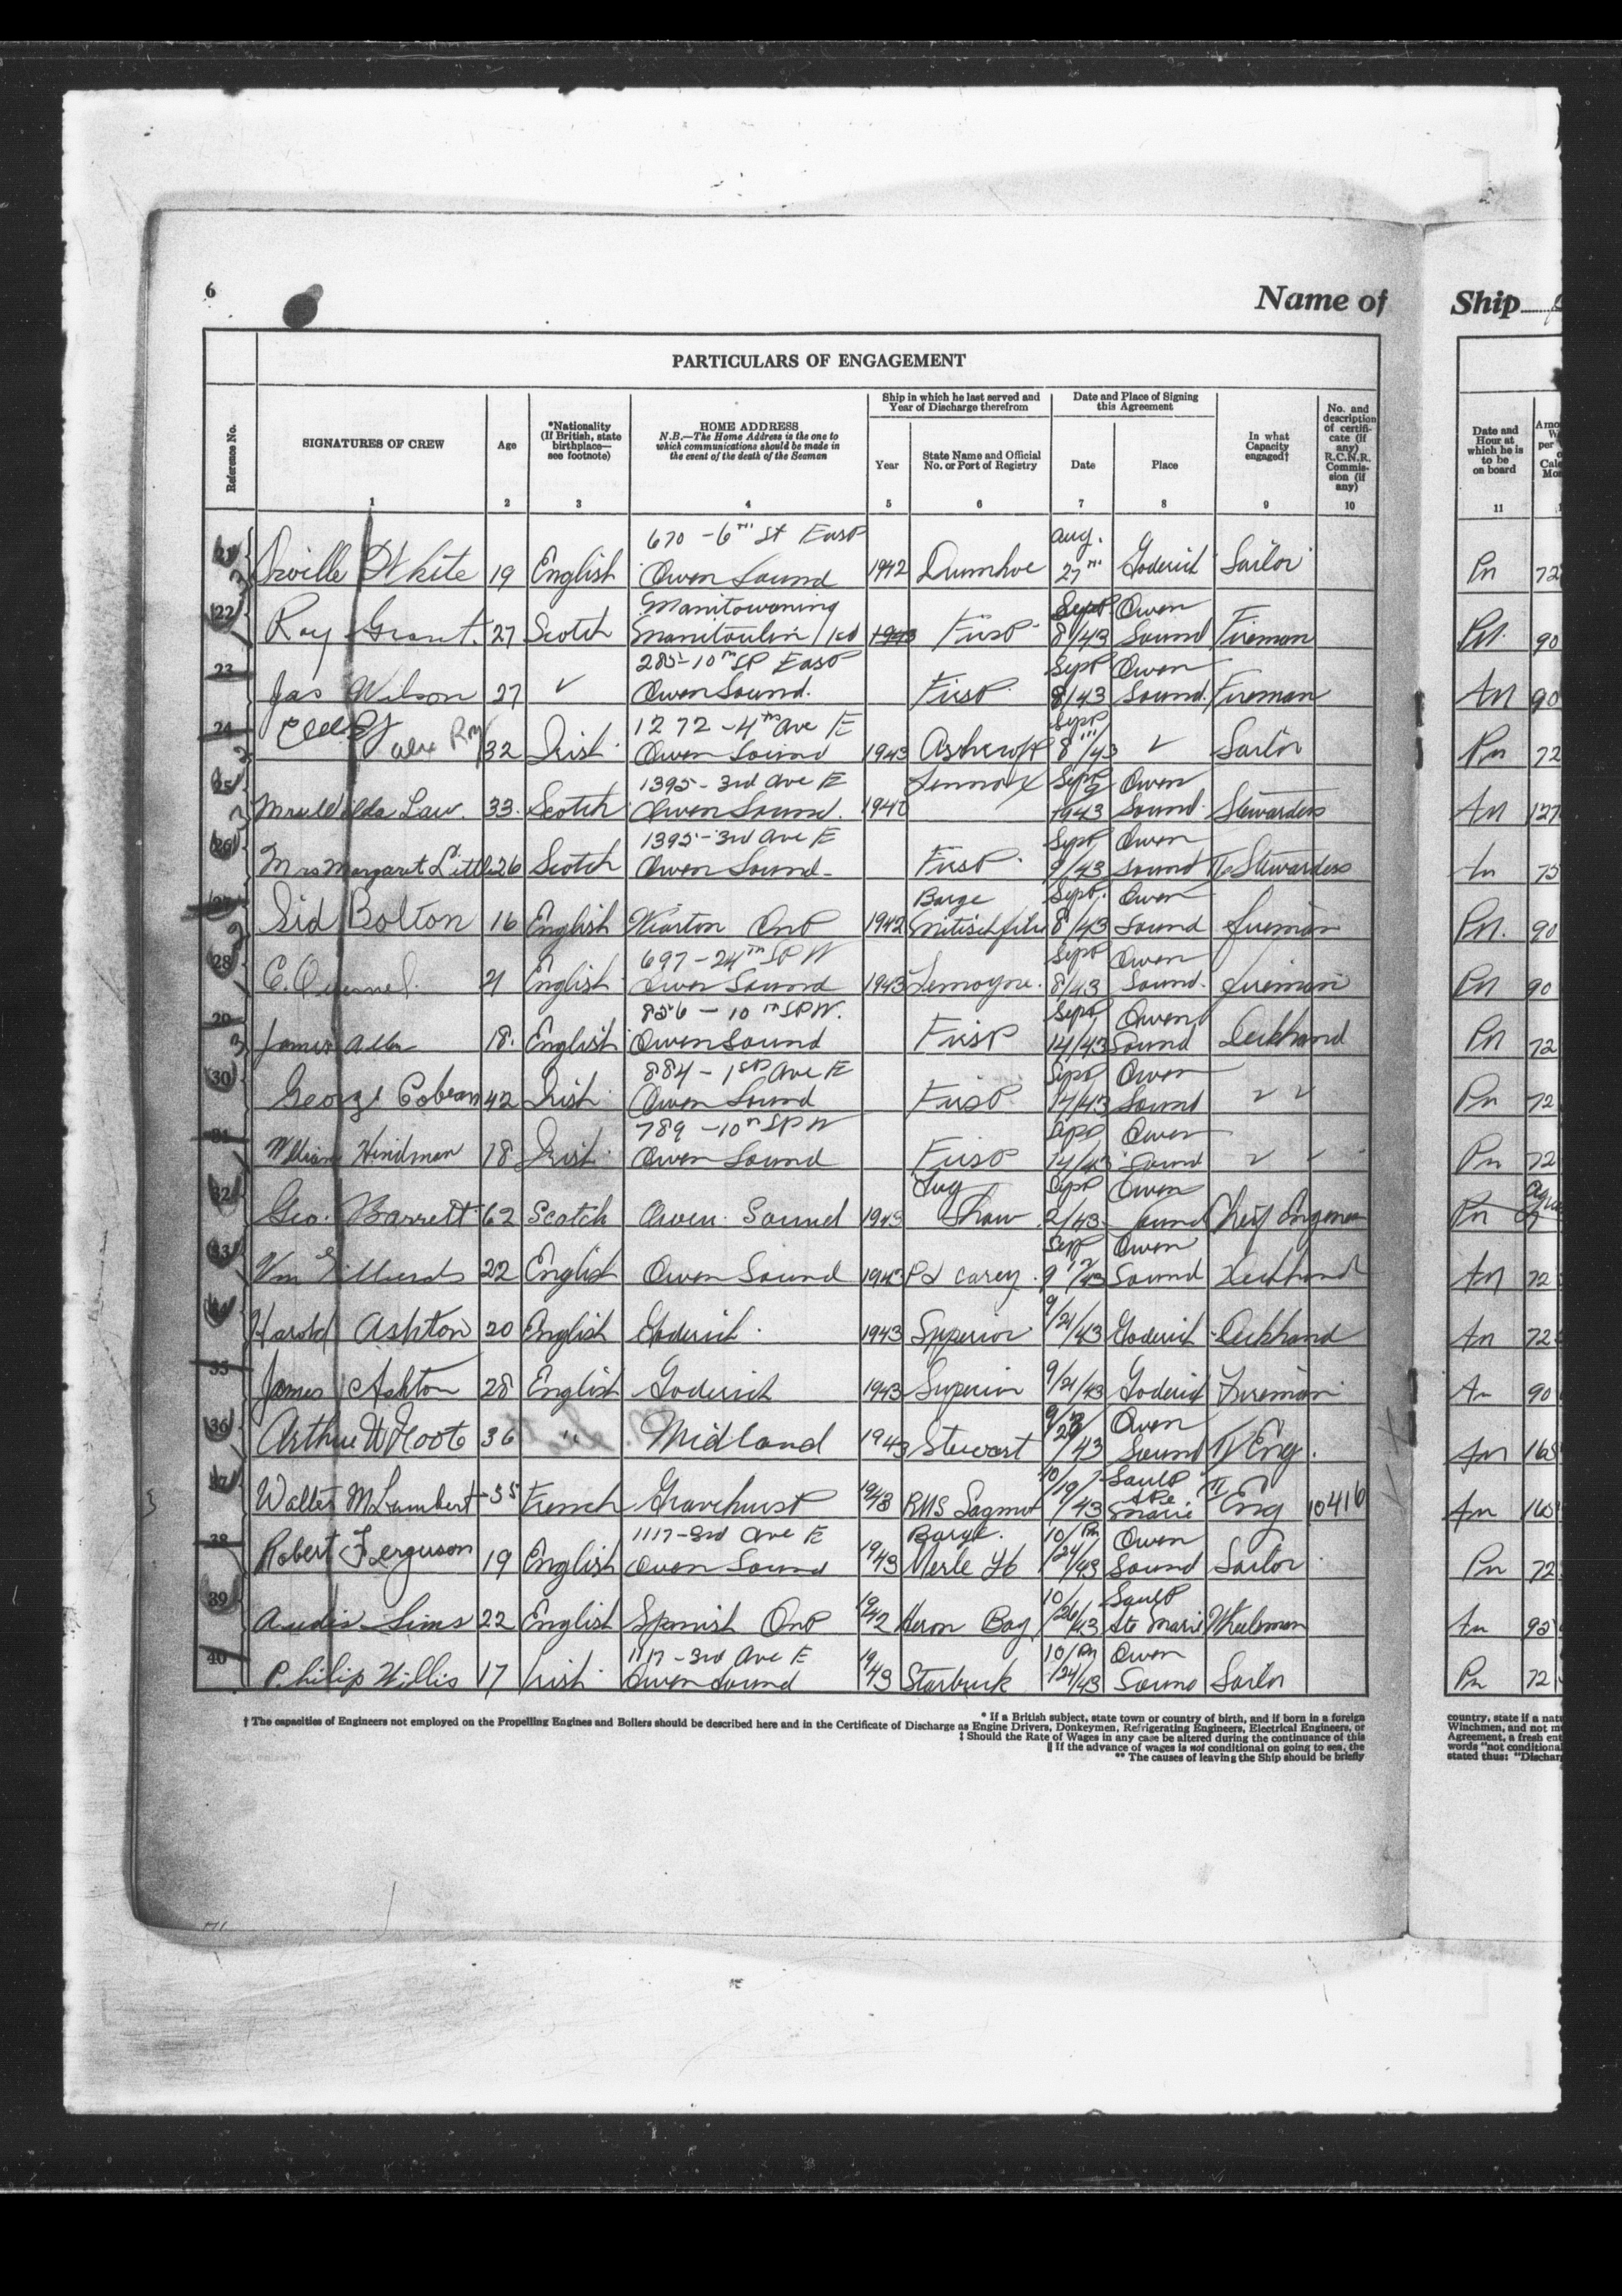 6
Name of
Ship
PARTICULARS OF ENGAGEMENT
Reference No.
SIGNATURES OF CREW
Age
*Nationality
(If British, state
birthplace—
see footnote)
HOME ADDRESS
N.B.—The Home Address is the one to
which communications should be made in
the event of the death of the Seaman
Ship in which he last served and
Year of Discharge therefrom
Year
State Name and Official
No. or Port of Registry
Date and Place of Signing
this Agreement
Date
Place
In what
Capacity
engaged†
No. and
description
of certifi-
cate (if
any)
R.C.N.R.
Commis-
sion (if
any)
Date and
Hour at
which he is
to be
on board
1 2 3 4 5 6 7 8 9 10 11
670 - 6th St East Aug.
21 Orville White 19 English Owen Sound 1942 27th Goderich Sailor Pn 72
Manitowaning Sept Owen
22 Roy Grant. 27 Scotch Manitoulin Isd 1943 First 8/43 Sound Fireman Pn. 90
285-10th St East Sept Owen
23 Jas Wilson 27 ✓ Owen Sound. First 8/43 Sound. Fireman An 90
1272 - 4th Ave E Sept
24 Alex 32 Irish Owen Sound 1943 Ashcroft 8th/43 ✓ Sailor Pn 72
1395 - 3rd Ave E Lennox Sept 9 Owen
25 Law. 33. Scotch Owen Sound. 1940 1943 Sound Stewardess An 127
1395 - 3rd Ave E Sept Owen
26 Mrs Margaret Little 26 Scotch Owen Sound - First 9/43 Sound Stewardess An 75
Barge Sept. Owen
27 Sid Bolton 16 English Wiarton Ont 1942 8/43 Sound fireman Pn. 90
697 - 24th St W Sept Owen
28 21 English Owen Sound 1943 Lemoyne. 8/43 Sound. fireman Pn 90
856 - 10th St W. Sept Owen
29 James 18. English Owen Sound First 14/43 Sound Deckhand Pn 72
884 - 1st Ave E Sept Owen
30 George Cobean 42 Irish Owen Sound First 14/43 Sound ✓ ✓ Pn 72
789 - 10th St W Sept Owen
31 William Hindman 18 Irish Owen Sound First 14/43 Sound ✓ ✓ Pn 72
Tug Sept Owen
32 Geo. Barrett 62 Scotch Owen Sound 1943 Shaw 2/43 Sound Cheif Engineer Pn
Sept Owen
33 Wm 22 English Owen Sound 1943 Carey 9 12/43 Sound Deckhand An 72
34 Harold Ashton 20 English Goderich 1943 Superior 9/21/43 Goderich Deckhand An 72
35 James Ashton 28 English Goderich 1943 Superior 9/21/43 Goderich Fireman An 90
Owen
36 Arthur W Foote 36 " Midland 1943 Stewart /43 Sound IV Eng. An 165
Sault
37 Walter M Lambert 35 French Gravenhurst 1943 RMS 10/19/43 Ste Marie II Eng 10416 An 165
1117 - 3rd Ave E Barge. 10/Pn Owen
38 Robert Ferguson 19 English Owen Sound 1943 Merle H 24/43 Sound Sailor Pn 72
Sault
39 Sims 22 English Spanish Ont 1942 Heron Bay 10/26/43 Ste Marie Wheelsman An 95
1117 - 3rd Ave E 10/Pn Owen
40 Philip Willis 17 Irish Owen Sound 1943 Starbuck 24/43 Sound Sailor Pn 72
* If a British subject, state town or country of birth, and if born in a foreign
† The capacities of Engineers not employed on the Propelling Engines and Boilers should be described here and in the Certificate of Discharge as Engine Drivers, Donkeymen, Refrigerating Engineers, Electrical Engineers, or
‡ Should the Rate of Wages in any case be altered during the continuance of this
‖ If the advance of wages is not conditional on going to sea, the
** The causes of leaving the Ship should be briefly
country, state if a
Winchmen, and not
Agreement, a fresh
words "not conditional
stated thus: